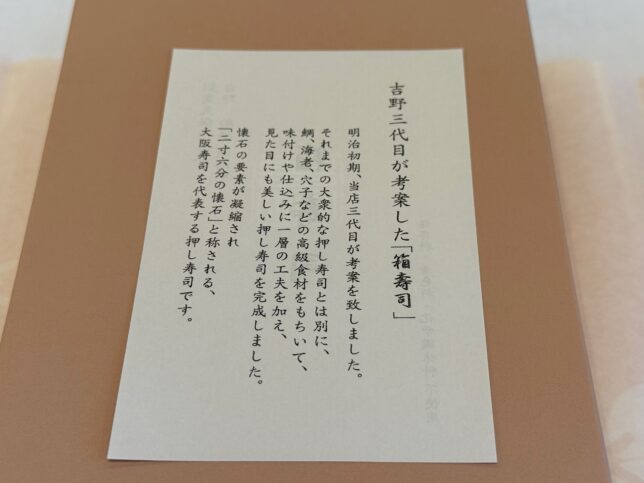 吉野三代目が考案した「箱壽司」
明治初期、当店三代目が考案を致しました。
それまでの大衆的な押し寿司とは別に、
鯛、海老、穴子などの高級食材をもちいて、
味付けや仕込みに一層の工夫を加え、
見た目にも美しい押し寿司を完成しました。
懐石の要素が凝縮され
「二寸六分の懐石」と称される、
大阪寿司を代表する押し寿司です。